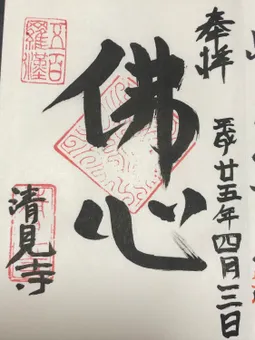 奉拝
平成廿五年四月三日
五百
羅漢
佛心
清見寺